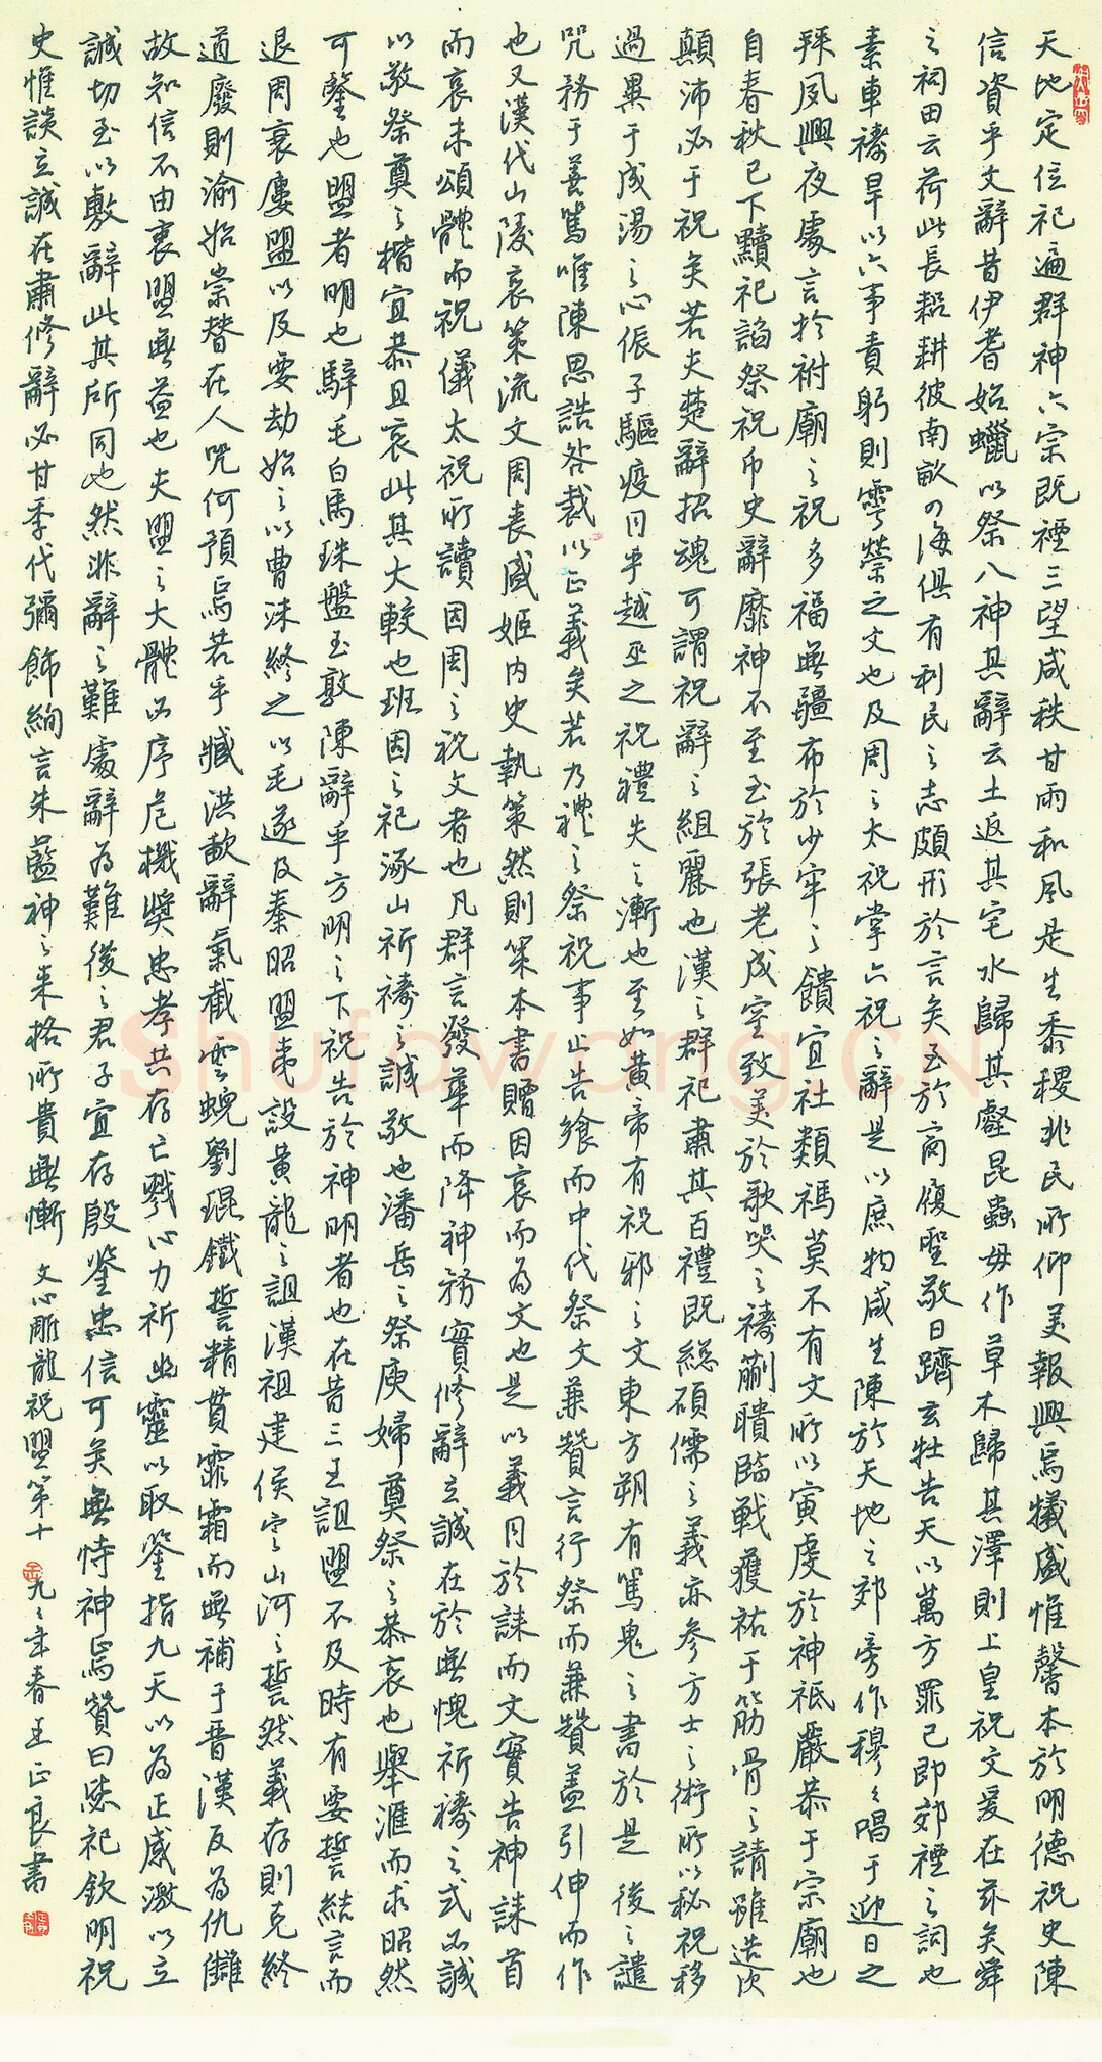 天地定位祀遍群神六宗既禋三望咸秩甘雨和風是生黍稷兆民所仰美報興焉犧盛惟馨本於明德祝史陳
信資乎文辭昔伊耆始蠟以祭八神其辭云土返其宅水歸其壑昆蟲毋作草木歸其澤則上皇祝文爰在茲矣舜
之祠田云荷此長耜耕彼南畝四海俱有利民之志頗形於言矣至於商履聖敬日躋玄牡告天以萬方罪己即郊禋之詞也
素車禱旱以六事責躬則雩禜之文也及周之太祝掌六祝之辭是以庶物咸生陳於天地之郊旁作穆穆唱于迎日之
拜夙興夜處言於祔廟之祝多福無疆布於少牢之饋宜社類禡莫不有文所以寅虔於神祇嚴恭于宗廟也
自春秋已下黷祀諂祭祝币史辭靡神不至至於張老成室致美於歌哭之禱蒯聵臨戰獲祐于筋骨之請雖造次
顛沛必于祝矣若夫楚辭招魂可謂祝辭之組麗也漢之群祀肅其百禮既總碩儒之義亦參方士之術所以秘祝移
過異于成湯之心侲子驅疫同乎越巫之祝禮失之漸也至如黃帝有祝邪之文東方朔有罵鬼之書於是後之譴
咒務于善罵唯陳思誥咎裁以正義矣若乃禮之祭祝事止告飨而中代祭文兼贊言行祭而兼贊蓋引伸而作
也又漢代山陵哀策流文周喪盛姬內史執策然則策本書贈因哀而為文也是以義同於誄而文實告神誄首
而哀末頌體而祝儀太祝所讀因周之祝文者也凡群言發華而降神務實修辭立誠在於無愧祈禱之式必誠
以敬祭奠之楷宜恭且哀此其大較也班固之祀涿山祈禱之誠敬也潘岳之祭庾婦奠祭之恭哀也舉滙而求昭然
可鑒也盟者明也騂毛白馬珠盤玉敦陳辭乎方明之下祝告於神明者也在昔三王詛盟不及時有要誓結言而
退周衰屢盟以及要劫始之以曹沫終之以毛遂及秦昭盟夷設黃龍之詛漢祖建侯定山河之誓然義存則克終
道廢則渝始崇替在人咒何預焉若乎臧洪歃辭氣截雲蜺劉琨鐵誓精貫霏霜而無補于晉漢反為仇讎
故知信不由衷盟無益也夫盟之大體必序危機獎忠孝共存亡戮心力祈幽靈以取鑒指九天以為正感激以立
誠切至以敷辭此其所同也然非辭之難處辭為難後之君子宜存殷鑒忠信可矣無恃神焉贊曰毖祀欽明祝
史惟談立誠在肅修辭必甘季代彌飾絢言朱藍神之來格所貴無慚 文心雕龍祝盟第十 九九年春王正良書
Shufawang.CN